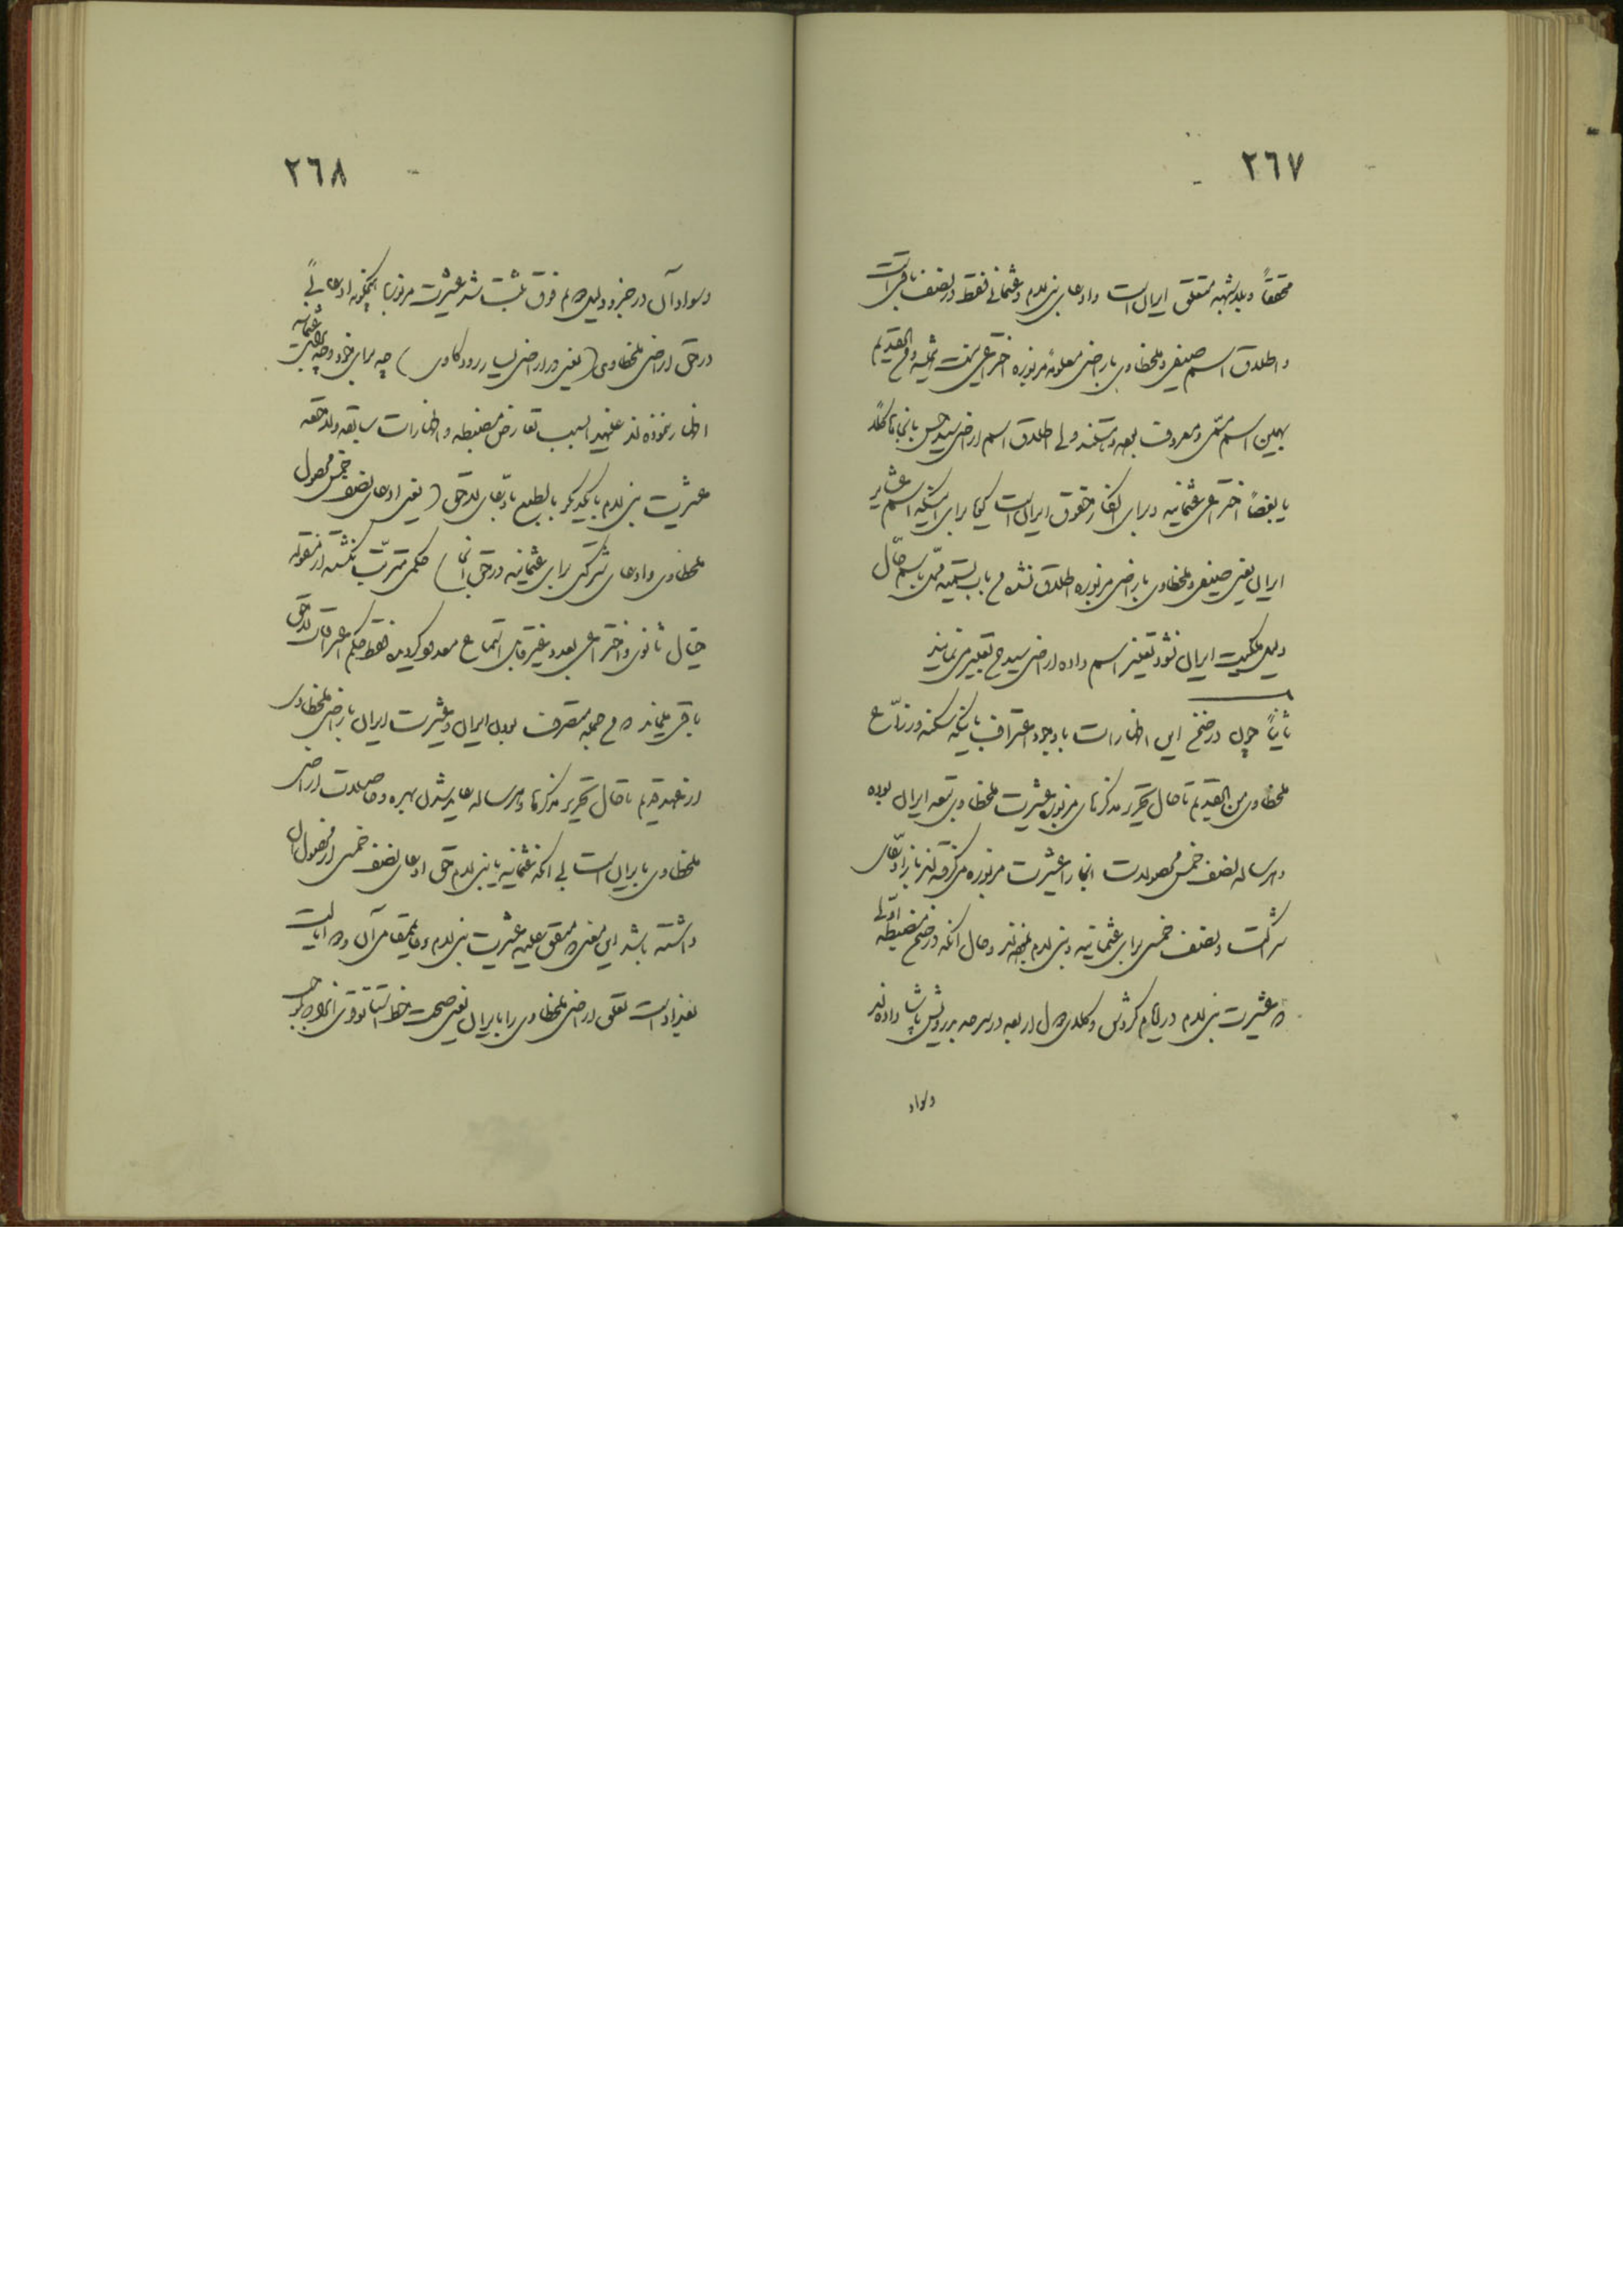 ٢٦٧
محققاً و بلاشبهه متعلق ایران است و ادعای بنی لام و عثمانی فقط در نصف باقی است
و اطلاق اسم صیفی و ملخطاوی باراضی معلومهٔ مزبوره اختراعی نیست و من القدیم
بهمین اسم مسمّی و معروف بوده و هستند ولی اطلاق اسم اراضی سید حسن بانجاها کلاً
یا بعضاً اختراعی عثمانیه و برای انکار حقوق ایران است کیما برای اینکه اسم عشایر
ایران یعنی صیفی و ملخطاوی باراضی مزبوره اطلاق نشده
دلیل ملکیت ایران نشود تغییر اسم داده اراضی سید ح تعبیر مینمایند
ثانیاً چون در ضمن این اظهارات با وجود اعتراف باینکه سکنه و زرّاع
ملخطاوی من القدیم تا حال تحریر مذکرهای مزبوره عشیرت ملخطاوی تبعه ایران بوده
و هر ساله نصف خمس محصولات انجا را عشیرت مزبوره میگرفته‌اند باز ادّعای
شراکت و نصف خمس برای عثمانیه و بنی لام نموده‌اند و حال آنکه در ضمن مضبطه اوّلی
که عشیرت بنی لام در ایام گردش وکلای دول اربعه در سرحد بدرویش پاشا داده‌اند
و سواد
٢٦٨
و سواد آن در جزو دلیل دهم فوق ثبت شد عشیرت مزبور هیچگونه ادعائی
در حق اراضی ملخطاوی (یعنی در اراضی یسار رود کاوی) چه برای خود و چه برای عثمانیه
اظهار ننموده‌اند علیهذا بسبب تعارض مضبطه و اظهارات سابقه و لاحقه
عشیرت بنی لام با یکدیگر بالطبع بادّعای لاحق (یعنی ادعای نصف خمس محصول
ملخطاوی و ادعای شرکت برای عثمانیه در حق انها) حکمی مترتّب نگشته از مقوله
خیال ثانوی و اختراعی بعد و غیر قابل استماع معدود گردیده فقط حکم اعترافات لاحق
باقی میماند که من جمله متصرف بودن ایران و عشیرت ایران باراضی ملخطاوی
از عهد قدیم تا حال تحریر مذکرها و هر ساله عاید شدن بهره و حاصلات اراضی
ملخطاوی بایران است بی آنکه عثمانیه یا بنی لام حق ادعای نصف خمس از محصول آن
داشته باشد این معنی که متفق علیه عشیرت بنی لام و قایمقام آن و والی ایالت
بغداد است تعلق اراضی ملخطاوی را بایران یعنی صحت خط استاتوقوی